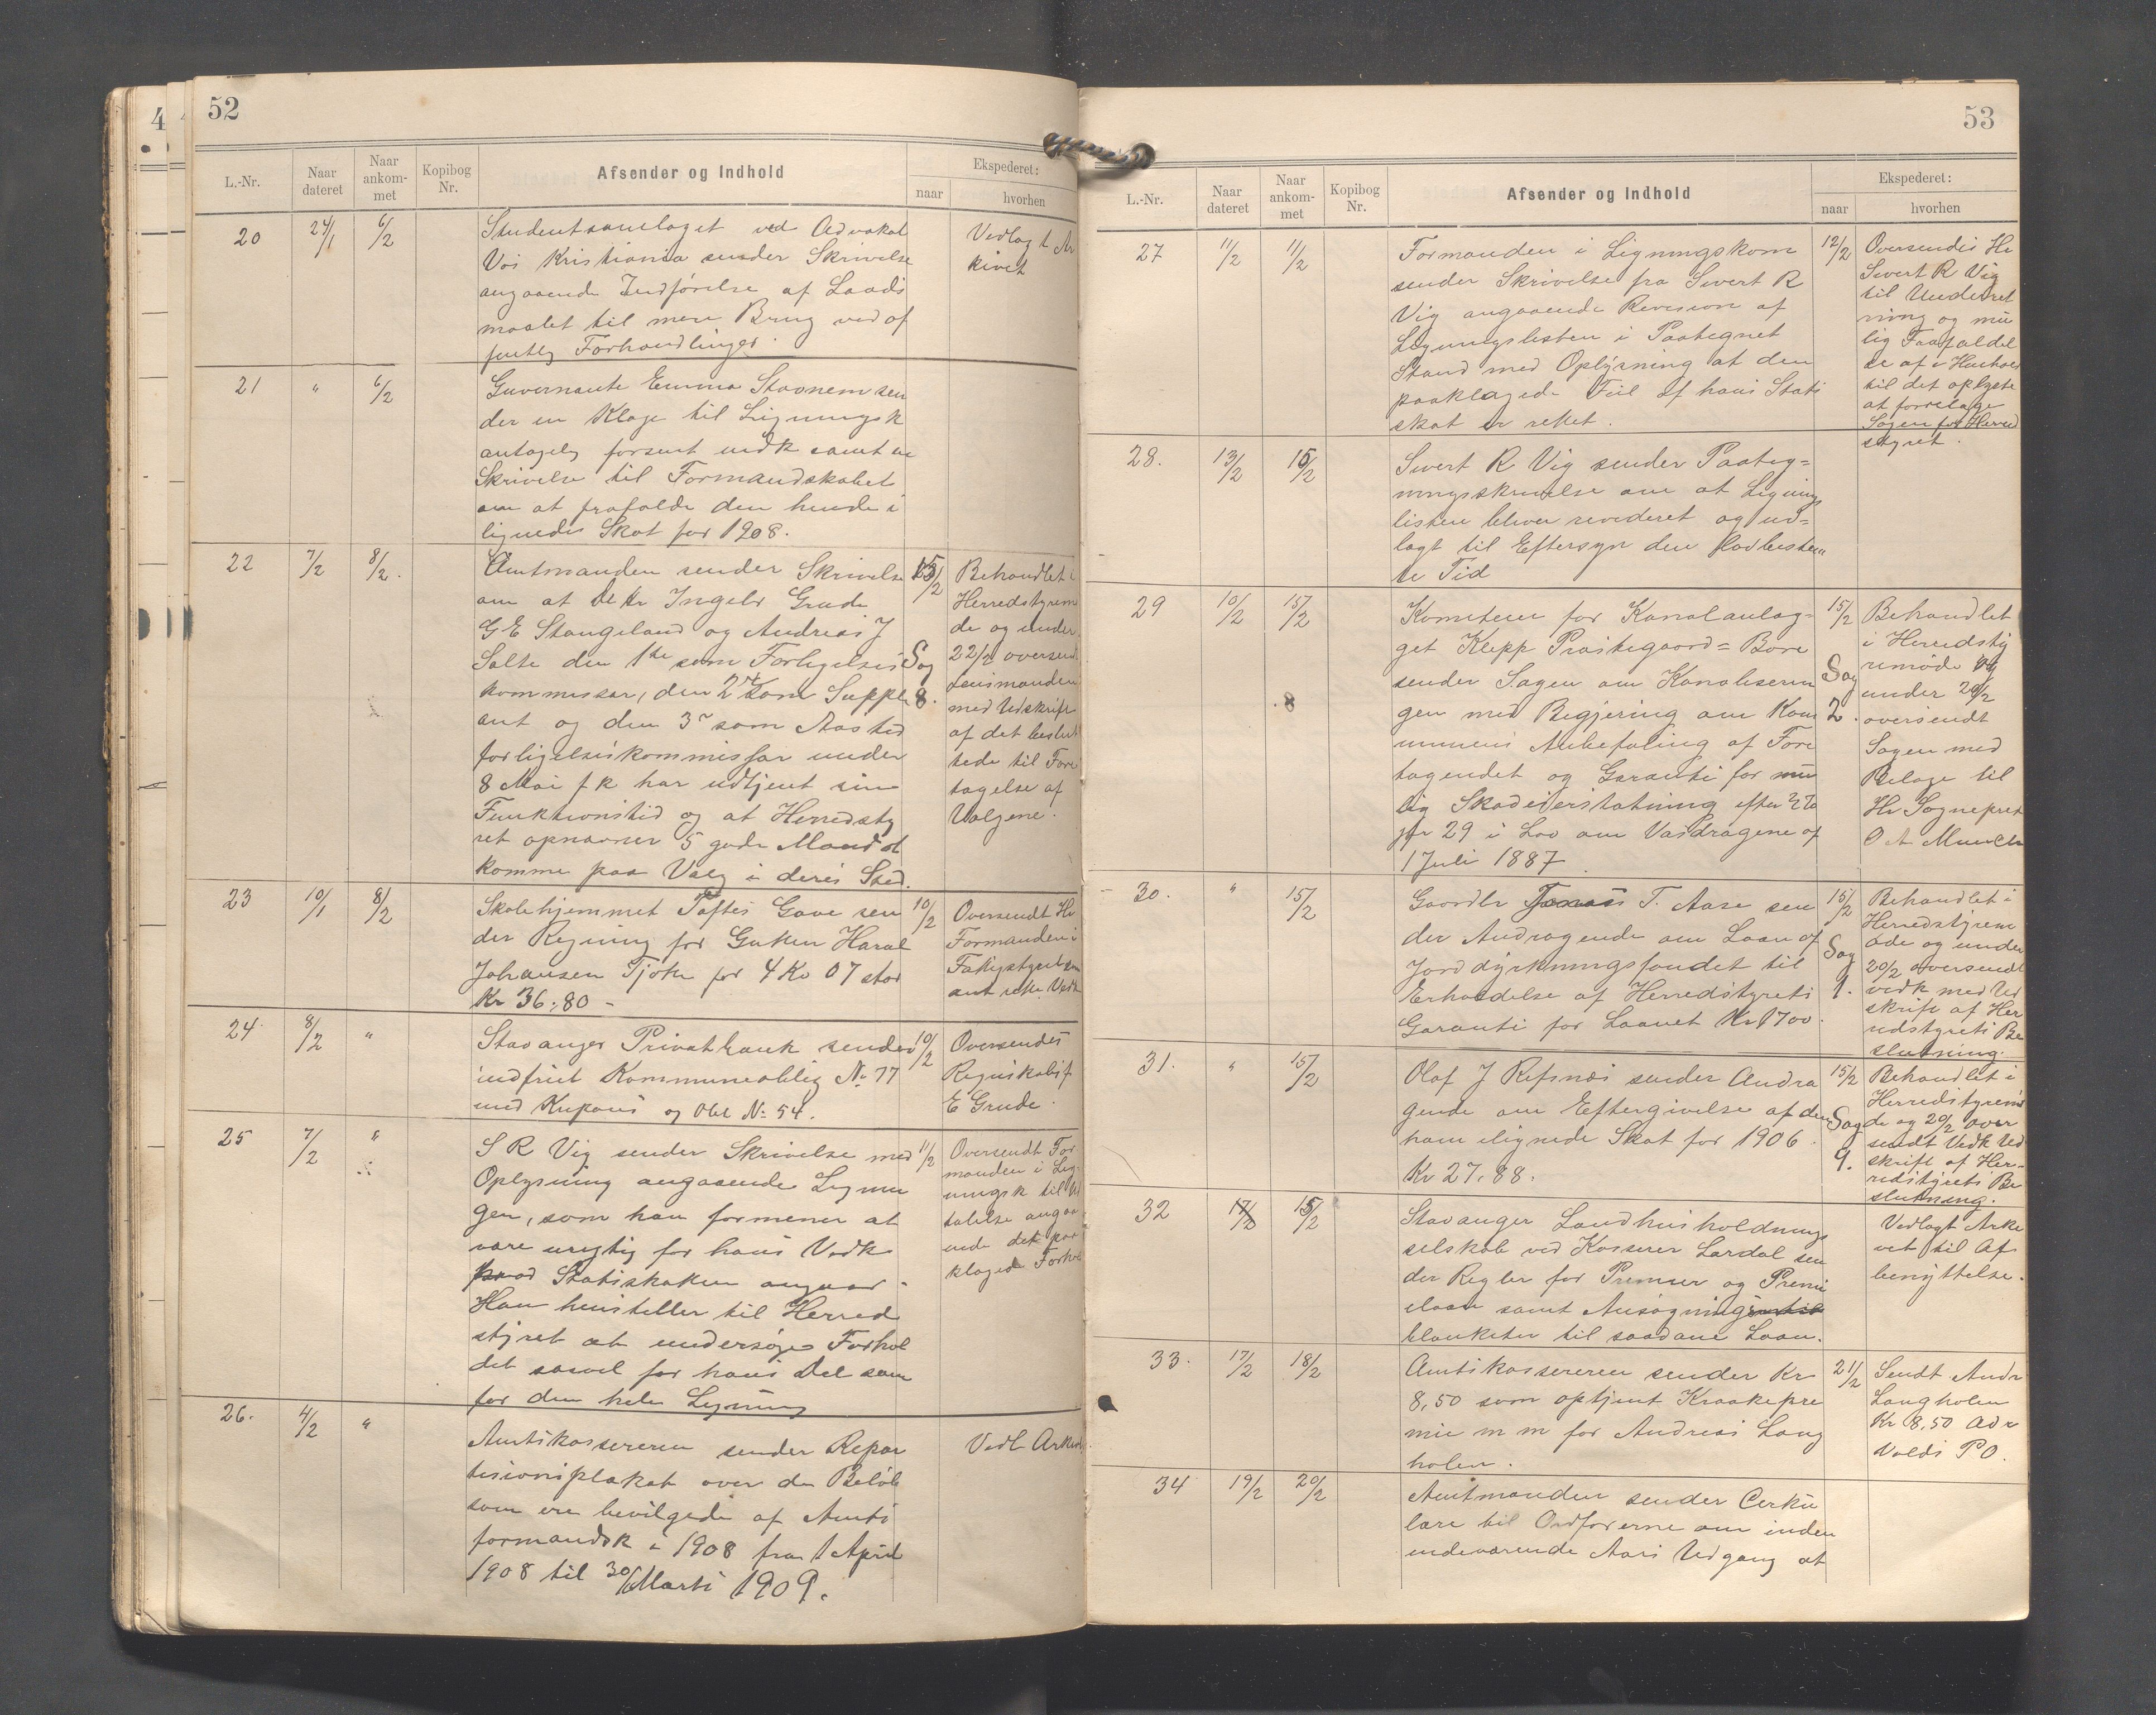 52
L.-Nr.
Naar dateret
Naar ankom-met
Kopibog Nr.
Afsender og Indhold
Ekspederet:
naar
hvorhen
20 24/1 6/2
Studentsamlaget ved Advokat
Vos Kristiania sender Skrivelse
angaaende Indførelse af Lands
maalet til mere Brug ved of
fentlig Forhandlinger.
Vedlagt Ar
kivet
21 " 6/2
Guvernante Emma Stavnem sen
der en Klage til Ligningsk
antagelig forsent indk samt en
Skrivelse til Formandskabet
om at frafalde den hende i
lignede Skat for 1908.
22 7/2 8/2.
Amtmanden sender Skrivelse
om at de Hr Ingebr Grude
G E Stangeland og Andreas J
Salte den 1te som Forligelses
kommissær, den 2den som Supple
ant og den 3e som Aasted
forligelseskommissær under
8 Mai f k har udtjent sin
Funktionstid og at Herredsty
ret opnævner 5 gode Mænd at
komme paa Valg i deres Sted.
15/2
Sag
8.
Behandlet i
Herredstyrem
de og under
22/2 oversend
Lensmanden
med Udskrift
af det beslut
tede til Fore
tagelse af
Valgene.
23 10/1 8/2
Skolehjemmet Toftes Gave sen
der Regning for Gutten Haral
Johansen Tjøtte for 4 Kv 07 stor
Kr 36,80 -
10/2
Oversendt Hr
Formanden i
Fattigstyret
24 8/2 "
Stavanger Privatbank sender
indfriet Kommuneoblig No 77
med Kupons og Obl No 54.
10/2
Oversendes
Regnskabsf
E Grude.
25 7/2 "
S R Vig sender Skrivelse med
Oplysning angaaende Lignin
gen, som han formener at
være urigtig for hans Vedk
hvad Statsskatten angaar -
Han henstiller til Herred
styret at undersøge Forhol
det saavel for hans Del som
for den hele Ligning
11/2
Oversendt For
manden i Lig
ningsk til Ud
talelse angaa
ende det paa
klagede Forhol
26. 4/2 "
Amtskassereren sender Repar
tisionsplakat over de Beløb
som ere bevilgede af Amts
formandsk i 1908 fra 1 April
1908 til 30/Marts 1909.
Vedl Arkivet
53
L.-Nr.
Naar dateret
Naar ankom-met
Kopibog Nr.
Afsender og Indhold
Ekspederet:
naar
hvorhen
27 11/2 11/2
Formanden i Ligningskom
sender Skrivelse fra Sivert R
Vig angaaende Revision af
Ligningslisten i Paategnet
Stand med Oplysning at den
paaklagede Feil af hans Stats
skat er rettet.
12/2
Oversendes Hr
Sivert R Vig
til Underret
ning og mu
lig Frafaldel
se af i Henhold
til det oplyste
at forelægge
Sagen for Herred
styret.
28. 13/2 15/2
Sivert R Vig sender Paateg=
ningsskrivelse om at Lignings
listen bliver revideret og ud=
lagt til Eftersyn den lovbestem
te Tid
29 10/2 15/2
Komiteen for Kanalanlæg=
get Klepp Præstegaard=Bore
sender Sagen om Kanaliserin
gen med Begjæring om Kom
munens Anbefaling af Fore
tagendet og Garanti for mu
lig Skadeserstatning efter
jfr 29 i Lov om Vasdragene af
1 Juli 1887
8
15/2
Sag
2.
Behandlet
i Herredsty
remøde og
under 20/2
oversendt
Sagen med
Bilage til
Hr Sogneprest
O A Munch
30. " 15/2
Gaardbr Jonas T. Aase sen
der Andragende om Laan af
Jorddyrkningsfondet til
Erholdelse af Herredstyrets
Garanti for Laanet Kr 1700.
15/2
Sag
1.
Behandlet i
Herredstyrem
øde og under
20/2 oversendt
vedk med Ud
skrift af Her
redstyrets Be
slutning.
31. " 15/2
Olaf J Refsnes sender Andra
gende om Eftergivelse af den
ham ilignede Skat for 1906.
Kr 27.88.
15/2
Sag
9.
Behandlet i
Herredstyremø
de og 20/2 over
sendt Vedk Ud
skrift af Her-
redstyrets Be
slutning.
32 17/2 15/2
Stavanger Landhusholdnings
selskab ved Kasserer Lardal sen
der Regler for Premier og Premi
elaan samt Ansøgnings
blanketer til saadane Laan.
Vedlagt Arki
vet til Af
benyttelse.
33. 17/2 18/2
Amtskassereren sender Kr
8,50 som optjent Kraakepre
mie m m for Andreas Lang
holen.
21/2
Sendt Andr
Langholen
Kr 8,50 Adr
Volds P O.
34 19/2 20/2
Amtmanden sender Cerku
lære til Ordførerne om inden
indeværende Aars Udgang at